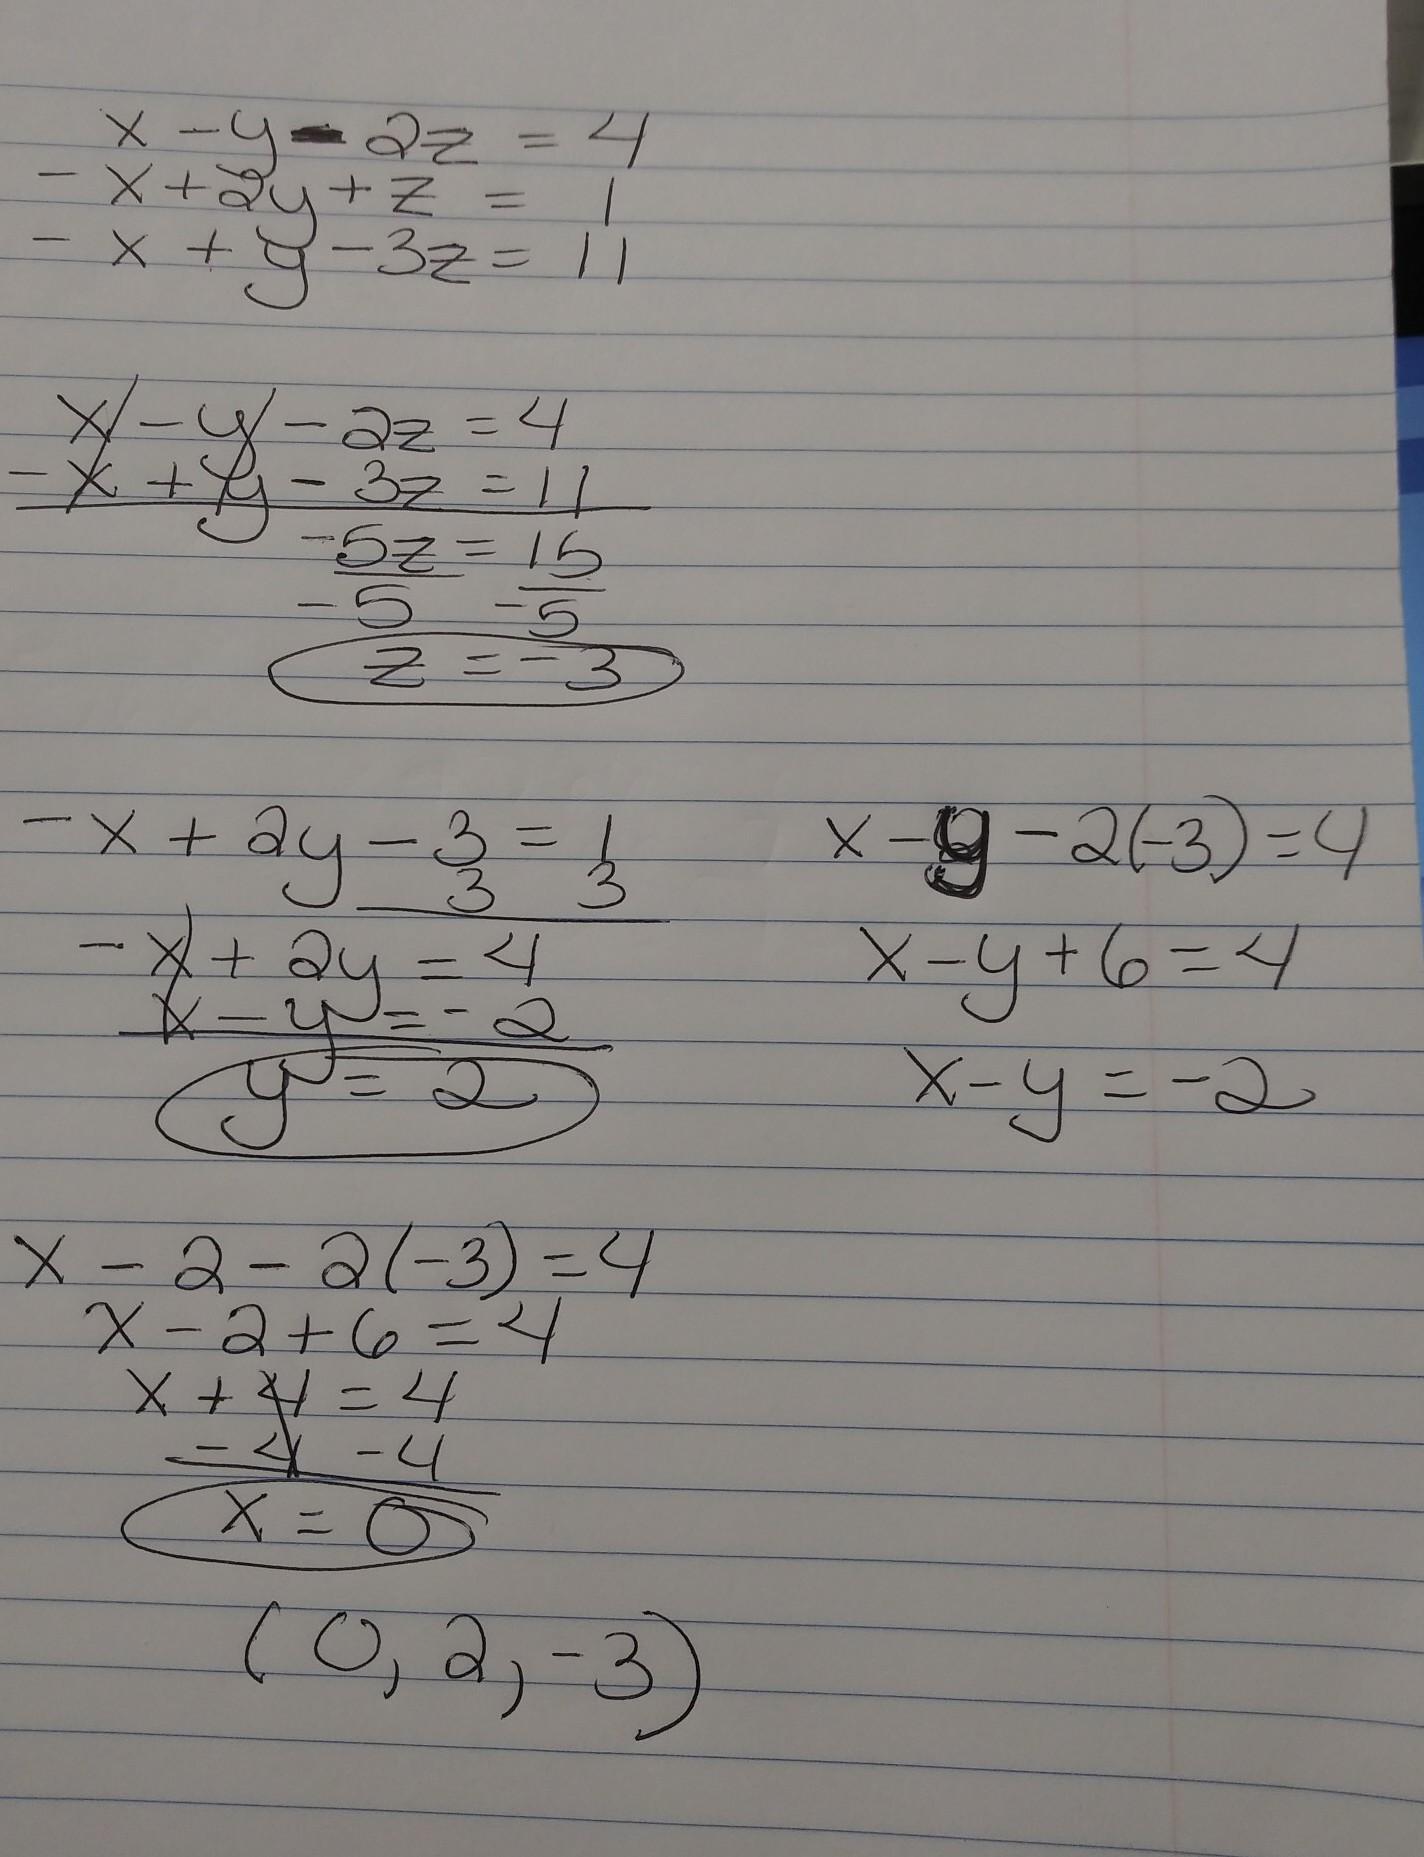 x - y - 2z = 4
- x + 2y + z = 1
- x + y - 3z = 11
x - y - 2z = 4
- x + y - 3z = 11
-5z = 15
-5 -5
z = -3
- x + 2y - 3 = 1
3 3
- x + 2y = 4
x - y = -2
y = 2
x - y - 2(-3) = 4
x - y + 6 = 4
x - y = -2
x - 2 - 2(-3) = 4
x - 2 + 6 = 4
x + 4 = 4
-4 -4
x = 0
(0, 2, -3)